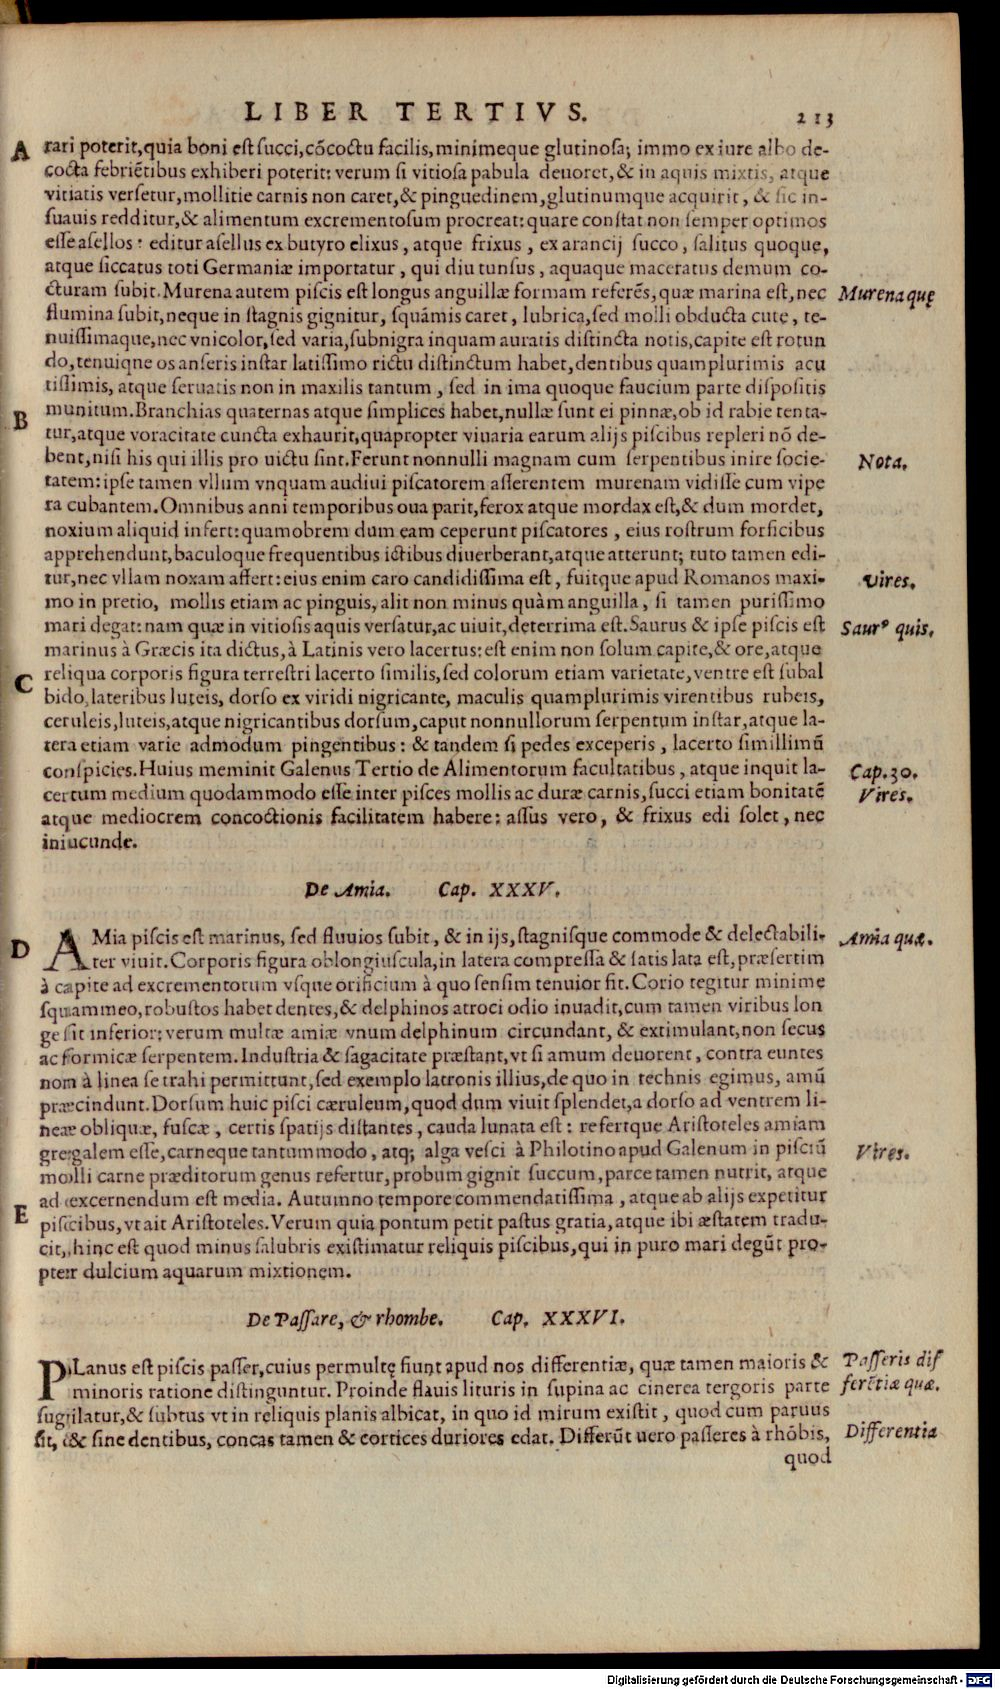 LIBER TERTIVS. 213
A rari poterit, quia boni est succi, cõcoctu facilis, minimeque glutinosa; immo ex iure albo de-
cocta febriẽtibus exhiberi poterit: verum si vitiosa pabula deuoret, & in aquis mixtis, atque
vitiatis versetur, mollitie carnis non caret, & pinguedinem, glutinumque acquirit, & sic in-
suauis redditur, & alimentum excrementosum procreat: quare constat non semper optimos
esse asellos: editur asellus ex butyro elixus, atque frixus, ex arancij succo, salitus quoque,
atque siccatus toti Germaniæ importatur, qui diu tunsus, aquaque maceratus demum co-
cturam subit. Murena autem piscis est longus anguillæ formam referẽs, quæ marina est, nec Murena quę
flumina subit, neque in stagnis gignitur, squâmis caret, lubrica, sed molli obducta cute, te-
nuissimaque, nec vnicolor, sed varia, subnigra inquam auratis distincta notis, capite est rotun
do, tenuique os anseris instar latissimo rictu distinctum habet, dentibus quamplurimis acu
tissimis, atque seruatis non in maxilis tantum, sed in ima quoque faucium parte dispositis
B munitum. Branchias quaternas atque simplices habet, nullæ sunt ei pinnæ, ob id rabie tenta-
tur, atque voracitate cuncta exhaurit, quapropter viuaria earum alijs piscibus repleri nõ de-
bent, nisi his qui illis pro uictu sint. Ferunt nonnulli magnam cum serpentibus inire socie- Nota.
tatem: ipse tamen vllum vnquam audiui piscatorem asserentem murenam vidisse cum vipe
ra cubantem. Omnibus anni temporibus oua parit, ferox atque mordax est, & dum mordet,
noxium aliquid infert: quamobrem dum eam ceperunt piscatores, eius rostrum forficibus
apprehendunt, baculoque frequentibus ictibus diuerberant, atque atterunt; tuto tamen edi-
tur, nec vllam noxam affert: eius enim caro candidissima est, fuitque apud Romanos maxi- Vires.
mo in pretio, mollis etiam ac pinguis, alit non minus quàm anguilla, si tamen purissimo
mari degat: nam quæ in vitiosis aquis versatur, ac uiuit, deterrima est. Saurus & ipse piscis est Saurꝰ quis.
marinus à Græcis ita dictus, à Latinis vero lacertus: est enim non solum capite, & ore, atque
C reliqua corporis figura terrestri lacerto similis, sed colorum etiam varietate, ventre est subal
bido, lateribus luteis, dorso ex viridi nigricante, maculis quamplurimis virentibus rubeis,
ceruleis, luteis, atque nigricantibus dorsum, caput nonnullorum serpentum instar, atque la-
tera etiam varie admodum pingentibus: & tandem si pedes exceperis, lacerto simillimũ
conspicies. Huius meminit Galenus Tertio de Alimentorum facultatibus, atque inquit la- Cap. 30.
certum medium quodammodo esse inter pisces mollis ac duræ carnis, succi etiam bonitatẽ Vires.
atque mediocrem concoctionis facilitatem habere: assus vero, & frixus edi solet, nec
iniucunde.
De Amia. Cap. XXXV.
D AMia piscis est marinus, sed fluuios subit, & in ijs, stagnisque commode & delectabili- Amia quæ.
ter viuit. Corporis figura oblongiuscula, in latera compressa & satis lata est, præsertim
à capite ad excrementorum vsque orificium à quo sensim tenuior fit. Corio tegitur minime
squammeo, robustos habet dentes, & delphinos atroci odio inuadit, cum tamen viribus lon
ge sit inferior: verum multæ amiæ vnum delphinum circundant, & extimulant, non secus
ac formicæ serpentem. Industria & sagacitate præstant, vt si amum deuorent, contra euntes
non à linea se trahi permittunt, sed exemplo latronis illius, de quo in technis egimus, amũ
præcindunt. Dorsum huic pisci cæruleum, quod dum viuit splendet, a dorso ad ventrem li-
neæ obliquæ, fuscæ, certis spatijs distantes, cauda lunata est: refertque Aristoteles amiam
gregalem esse, carneque tantummodo, atq; alga vesci à Philotino apud Galenum in pisciũ Vires.
molli carne præditorum genus refertur, probum gignit succum, parce tamen nutrit, atque
ad excernendum est media. Autumno tempore commendatissima, atque ab alijs expetitur
E piscibus, vt ait Aristoteles. Verum quia pontum petit pastus gratia, atque ibi æstatem tradu-
cit, hinc est quod minus salubris existimatur reliquis piscibus, qui in puro mari degũt pro-
pter dulcium aquarum mixtionem.
De Passare, & rhombe. Cap. XXXVI.
PLanus est piscis passer, cuius permultę fiunt apud nos differentiæ, quæ tamen maioris & Passeris dif
minoris ratione distinguntur. Proinde flauis lituris in supina ac cinerea tergoris parte ferẽtiæ quæ.
sugillatur, & subtus vt in reliquis planis albicat, in quo id mirum existit, quod cum paruus
sit, & sine dentibus, concas tamen & cortices duriores edat. Differũt uero passeres à rhõbis, Differentia
quod
Digitalisierung gefördert durch die Deutsche Forschungsgemeinschaft - DFG